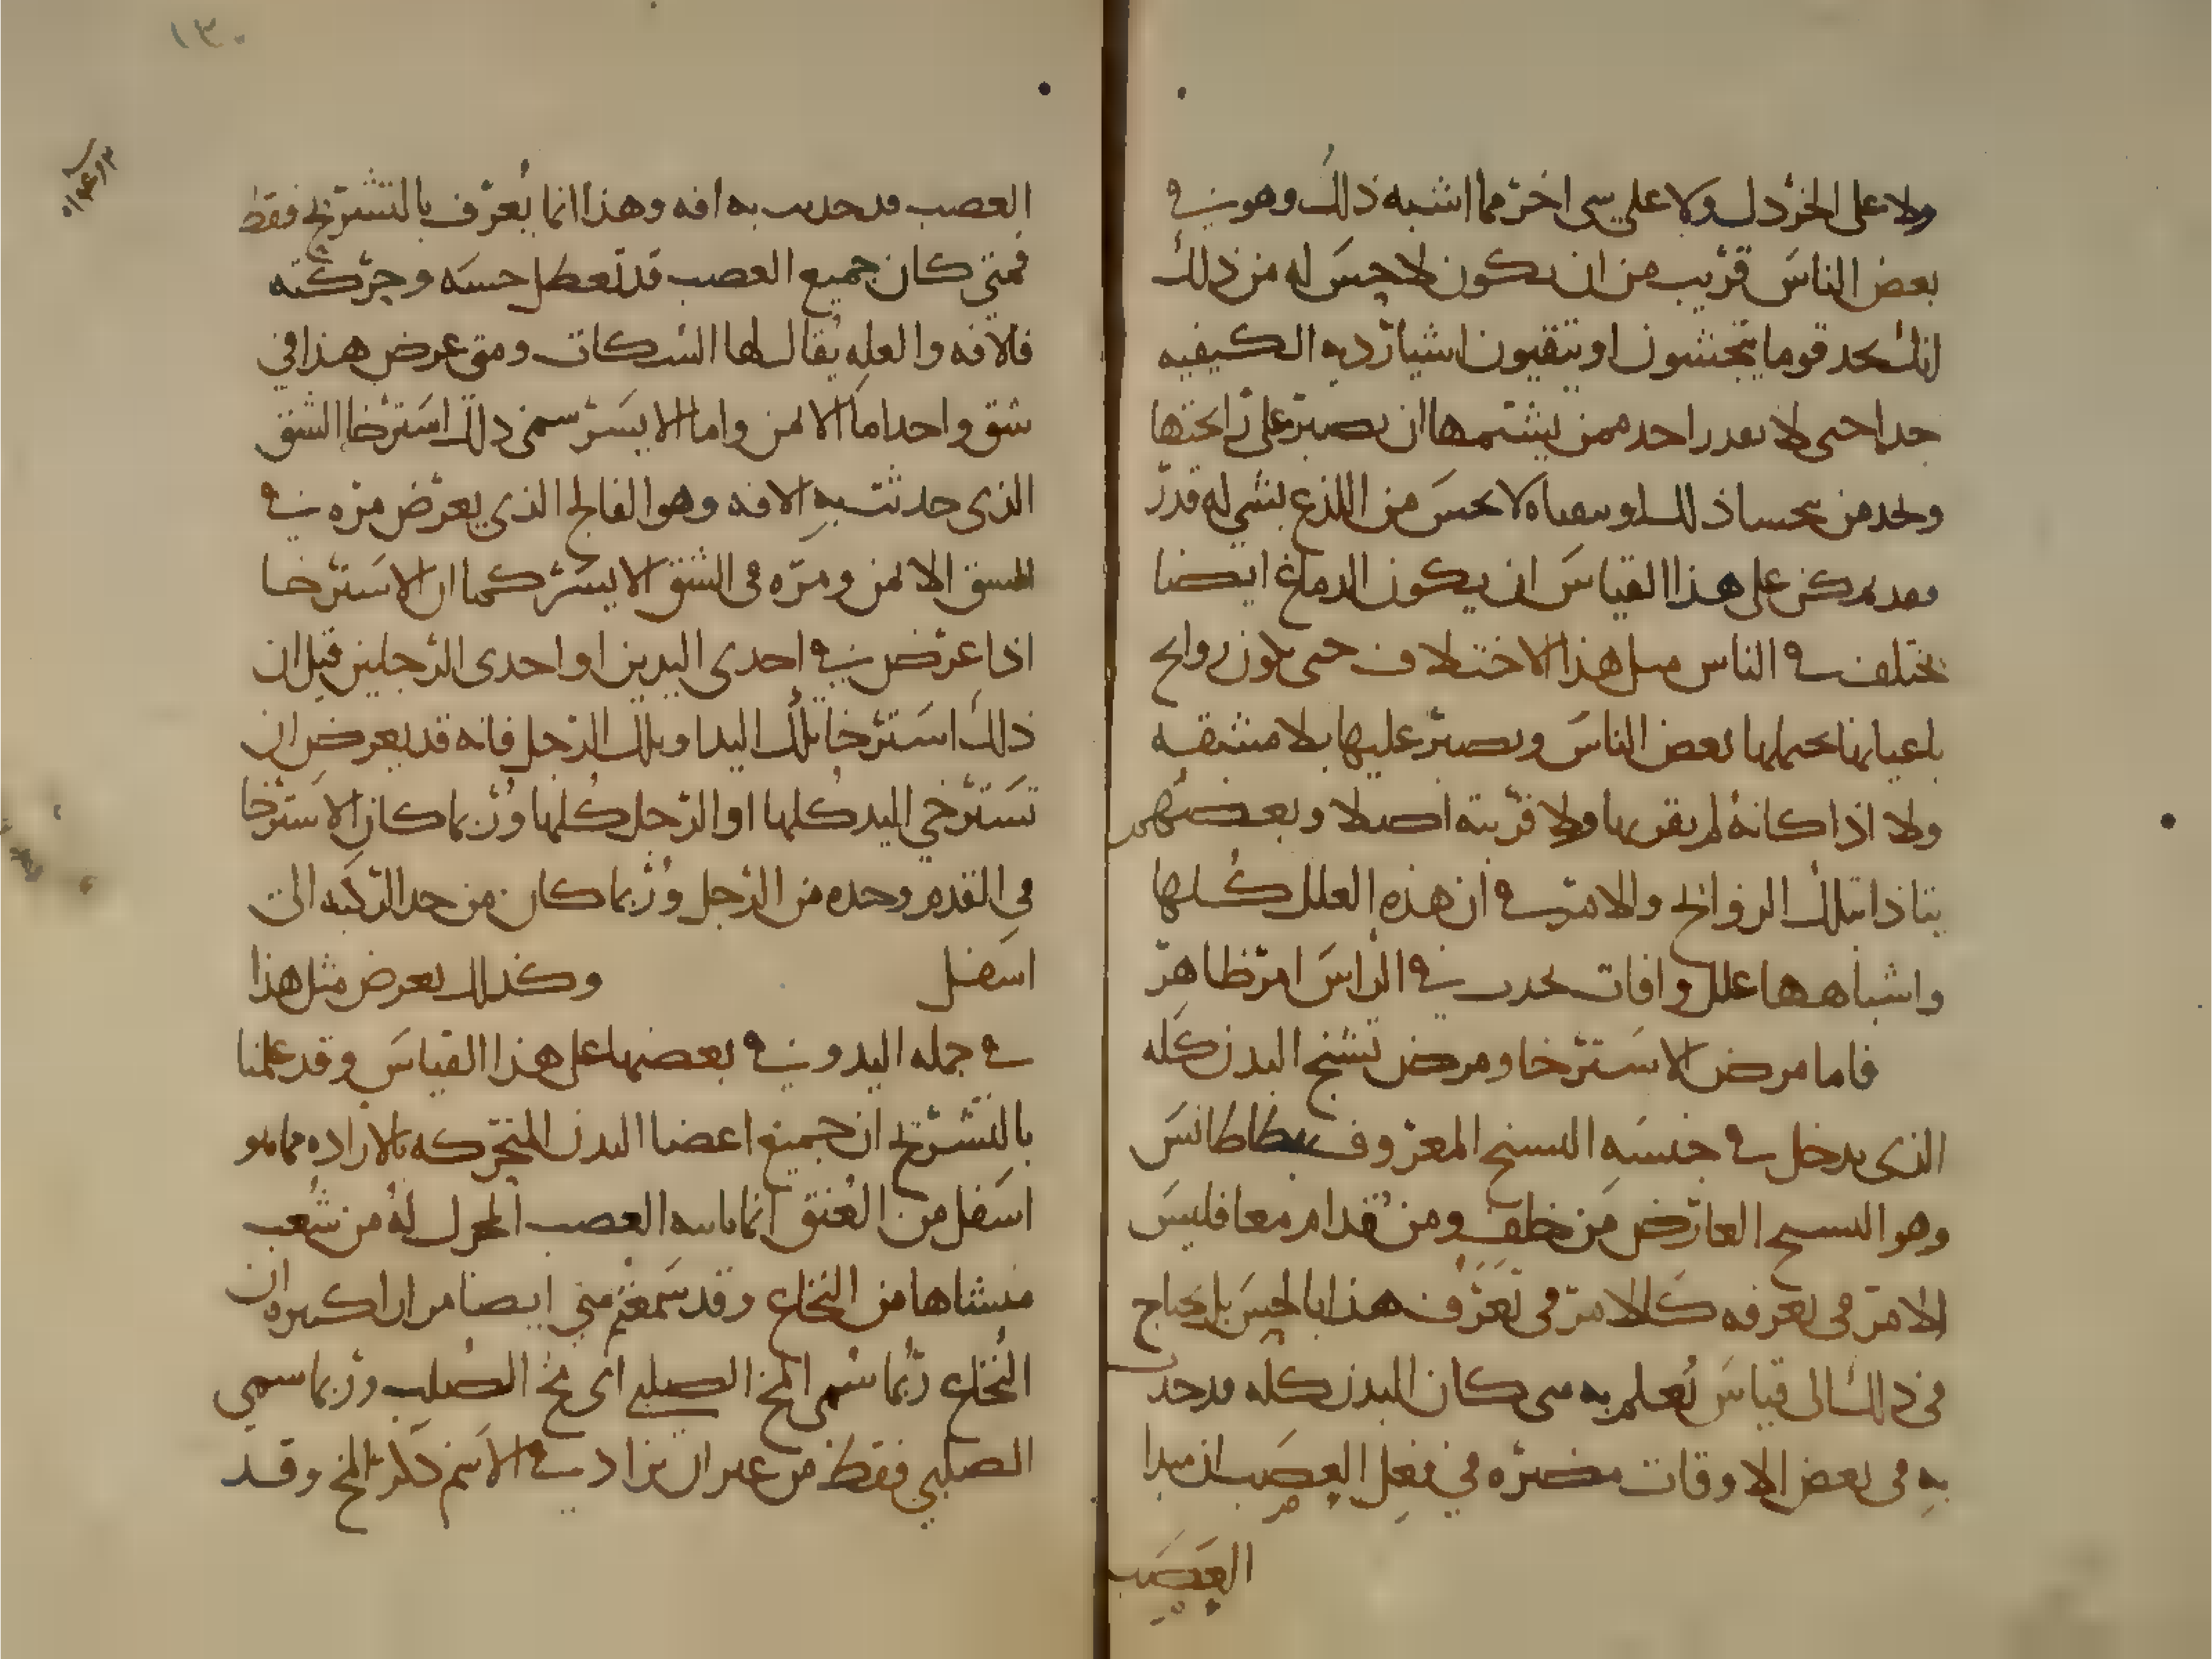 ولا على الخردل ولا على سى اخر مما اشبه ذلك وهو في
بعض الناس قريب من ان يكون لا حس له من ذلك
انك تجد قوما يتجشون او يتقيون اشيا ردیه الكيفيه
جدا حتى لا يقدر احد ممن يشتمها ان يصبر على رائحتها
وتجد من يحسا ذلك او يتقياه لا يحس من اللذع بشي له قدر
فقد يمكن على هذا القياس ان يكون الدماغ ايضا
يختلف في الناس مثل هذا الاختلاف حتى يكون روايح
باعيانها يحتملها بعض الناس ويصبر عليها بلا مشقه
ولا اذا كانه لم يقربها ولا قربته اصلا وبعضهم
يتاذا بتلك الروائح والامر في ان هذه العلل كلها
واشباهها علل وافات تحدث في الراس امر ظاهر
فاما مرض الاسترخا ومرض تشنج البدن كله
الذي يدخل في جنسه التشنج المعروف بطاطانس
وهو التشنج العارض من خلف ومن قدام معا فليس
الامر في تعرفه كالامر في تعرف هذا بالحس بل يحتاج
في ذلك الى قياس تعلم به متى كان البدن كله قد حدث
به في بعض الاوقات مضره في فعل العصب ان مبدا
العصب
العصب قد حدث به افه وهذا انما يعرف بالتشريح فقط
فمتى كان جميع العصب قد تعطل حسه وحركته
فالافه والعله يقال لها السكات ومتى عرض هذا في
شق واحد اما الايمن واما الايسر سمي ذلك استرخا الشق
الذي حدثت به الافه وهو الفالج الذي يعرض مره في
الشق الايمن ومره في الشق الايسر كما ان الاسترخا
اذا عرض في احدى اليدين او احدى الرجلين قيل ان
ذلك استرخا تلك اليد او تلك الرجل فانه قد يعرض ان
تسترخي اليد كلها او الرجل كلها وربما كان الاسترخا
في القدم وحده من الرجل وربما كان من حد الركبه الى
اسفل وكذلك يعرض مثل هذا
في جمله اليد وفي بعضها على هذا القياس وقد علمنا
بالتشريح ان جميع اعضا البدن المتحركه بالاراده مما هو
اسفل من العنق انما ياتيه العصب المحرك له من شعب
منشاها من النخاع وقد سمعتم مني ايضا مرارا كثيره ان
النخاع ربما سمي المخ الصلبي اى مخ الصلب وربما سمي
الصلبي فقط من غير ان يزاد في الاسم ذكر المخ وقد